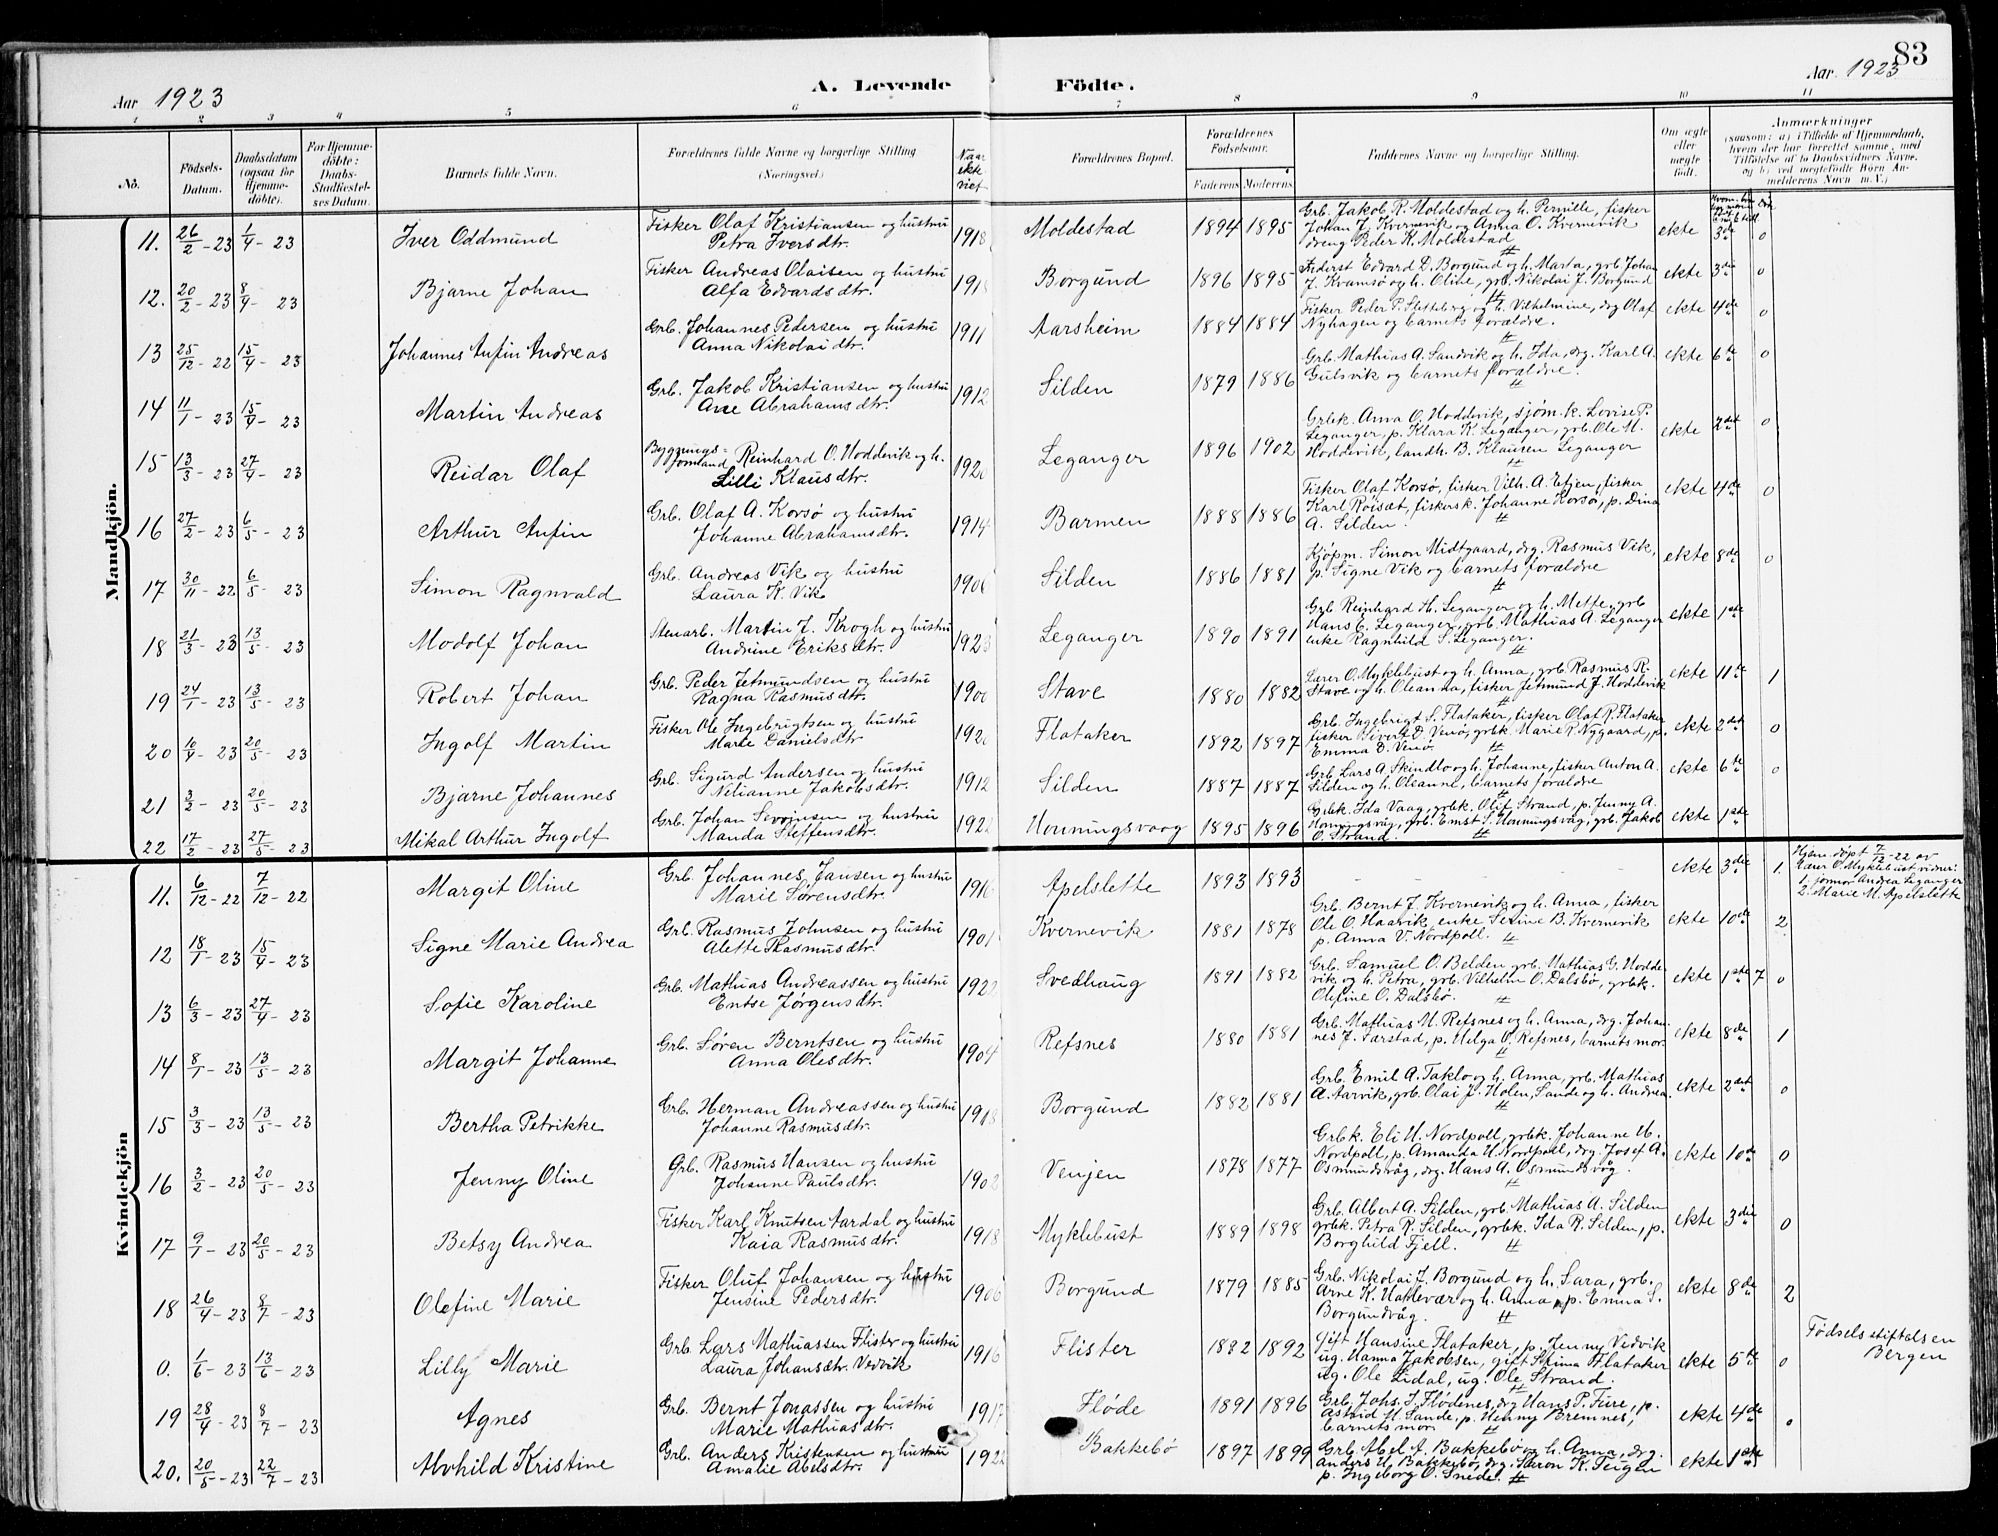 83
Aar 1923 A. Levende Födte. Aar 1923
1 2 3 4 5 6 7 8 9 10 11
No. Födsels-Datum. Daabsdatum (ogsaa for Hjemme-döbte). For Hjemme-döbte: Daabs-Stadfæstel-ses Datum. Barnets fulde Navn. Forældrenes fulde Navne og borgerlige Stilling (Næringsvei). Naar ekte viet Forældrenes Bopæl. Forældrenes Födselsaar. Faderens Moderens Faddernes Navne og borgerlige Stilling. Om ægte eller uægte födt. Anmærkninger (saasom: a) i Tilfælde af Hjemmedaab, hvem der har forrettet samme, med Tilföielse af to Daabsvidners Navne, og b) ved uægtefödte Börn An-melderens Navn m. V.)
Mandkjön.
11. 26/2-23 1/4-23 Iver Oddmund Fisker Olaf Kristiansen og hustru Petra Iversdtr. 1918 Moldestad 1894 1895 Grb. Jakob R. Moldestad og h. Pernille, fisker Johan J. Kvernevik og Anna O. Kvernevik dreng Peder K. Moldestad ekte 3de 0
12. 20/2-23 8/4-23 Bjarne Johan Fisker Andreas Olaisen og hustru Alfa Edvardsdtr. Borgund 1896 1895 Føderst Edvard D. Borgund og h. Marta, grb. Johan J. Kramsø og h. Oline, grb. Nikolai J. Borgund ekte 3die 0
13 25/12-22 15/4-23 Johannes Anfin Andreas Grb. Johannes Pedersen og hustru Anna Nikolaidtr. 1911 Aarsheim 1884 1884 Fisker Peder P. Sletteberg og h. Vilhelmine, drg Olaf Nyhagen og barnets forældre. ekte 4de 0
14 11/1-23 15/4-23 Martin Andreas Grb. Jakob Kristiansen og hustru Ane Abrahamsdtr. 1912 Silden 1879 1886 Grb. Mathias A. Sandvik og h. Ida, drg. Karl A. Gulsvik og barnets forældre. ekte 6te 0
15 13/3-23 27/4-23 Reidar Olaf Bygnings= formand Reinhard O. Hoddevik og h. Lilli Klausdtr. 1920 Leganger 1896 1902 Grbk. Anna O. Hoddevik, sjøm.k. Lovise P. Leganger, p. Klara K. Leganger, grb. Ole M. Hoddevik, landh. B. Klausen Leganger ekte 2det 0
16 27/2-23 6/5-23 Arthur Anfin Grb. Olaf A. Korsø og hustru Johanne Abrahamsdtr. 1914 Barmen 1888 1886 Fisker Olaf Korsø, fisker Vilh. A. Eltjen, fisker Karl Røiset, fiskersk. Johanne Korsø, p. Dina A. Silden. ekte 4de 0
17 30/11-22 6/5-23 Simon Ragnvald Grb. Andreas Vik og hustru Laura K. Vik Silden 1886 1881 Kjøpm. Simon Midtgaard, drg. Rasmus Vik, p. Signe Vik og barnets forældre ekte 8de 0
18 21/3-23 13/5-23 Modolf Johan Stenarb. Martin J. Krogh og hustru Andrine Eriksdtr. 1923 Leganger 1890 1891 Grb Reinhard H. Leganger og h. Mette, grb Hans C. Leganger, grb. Mathias A. Leganger enke Ragnhild S. Leganger. ekte 1ste
19 24/1-23 13/5-23 Robert Johan Grb. Peder Jetmundsen og hustru Ragna Rasmusdtr. Stave 1880 1882 Lærer O. Myklebust og h. Anna, grb. Rasmus R. Stave og h. Oleanna, fisker Jetmund J. Hoddevik ekte 11te 1
20 10/4-23 20/5-23 Ingolf Martin Fisker Ole Ingebrigtsen og hustru Marie Danielsdtr. 1920 Flataker 1892 1897 Grb. Ingebrigt S. Flataker, fisker Olaf R. Flataker fisker Sivert D. Venø, grbk. Marie R. Nygaard, p. Emma D. Venø. ekte 2det 0
21 3/2-23 20/5-23 Bjarne Johannes Grb. Sigurd Andersen og hustru Nelianne Jakobsdtr. 1912 Silden 1887 1887 Grb. Lars A. Skindlo og h. Johanne, fisker Anton A. Silden og h. Olianne, barnets forældre ekte 6te 0
22 17/2-23 27/5-23 Mikal Arthur Ingolf Grb. Johan Severinsen og hustru Manda Steffensdtr. 1922 Honningsvaag 1895 1896 Grbk. Ida Vaag, grbk. Olif Strand, p. Jenny A. Honningsvåg, grb. Ernst S. Honningsvåg, grb. Jakob O. Strand. ekte 1ste
Kvindekjön
11. 6/12-22 7/12-22 Margit Oline Grb. Johannes Jansen og hustru Marie Sørensdtr. 1916 Apelslette 1893 1893 - - - ekte 3die 1. Hjem. døpt 7/12-22 av Lærer O. Myklebust vidner: 1. jomor Andrea Leganger 2. Marie M. Apelslette
12 18/1-23 15/4-23 Signe Marie Andrea Grb. Rasmus Johnsen og hustru Alette Rasmusdtr. 1901 Kvernevik 1881 1878 Grb. Bernt J. Kvernevik og h. Anna, fisker Ole O. Haarvik enke Serine B. Kvernevik p. Anna V. Nordpoll. ekte 10de 2
13 6/3-23 27/4-23 Sofie Karoline Grb. Mathias Andreassen og hustru Entse Jørgensdtr. 1922 Svedhaug 1891 1882 Grb. Samuel O. Belden grb. Mathias G. Hodde vik og h. Petra, grb. Vilhelm O. Dalsbø, grbk. Olefine O. Dalsbø. ekte 1ste 7 0
14 8/1-23 13/5-23 Margit Johanne Grb. Søren Berntsen og hustru Anna Olesdtr. 1904 Refsnes 1880 1881 Grb. Mathias M. Refsnes og h. Anna, drg. Johan nes J. Tarstad, p. Helga O. Refsnes, barnets mor. ekte 8de 1
15 3/3-23 13/5-23 Bertha Petrikke Grb. Herman Andreassen og hustru Johanne Rasmusdtr. 1918 Borgund 1882 1881 Grb. Emil A. Taklo og h. Anna, grb. Mathias A. Aarvik, grb. Olai J. Holen, Sande og h. Andrea. ekte 2det 0
16 3/2-23 20/5-23 Jenny Oline Grb. Rasmus Hansen og hustru Johanne Paulsdtr. 1902 Venjen 1878 1877 Grbk. Eli H. Nordpoll, grbk. Johanne H. Nordpoll, p. Amanda H. Nordpoll, drg. Josef A. Osmundsvåg, drg. Hans A. Osmundsvåg. ekte 10de 0
17 9/1-23 20/5-23 Betsy Andrea Fisker Karl Knutsen Aardal og hustru Kaia Rasmusdtr. 1918 Myklebust 1889 1898 Grb. Albert A. Silden, grb. Mathias A. Silden grbk. Petra R. Silden, grbk. Ida R. Silden, p. Borghild Fjell. ekte 3die 0
18 26/4-23 8/7-23 Olefine Marie Fisker Oluf Johansen og hustru Jensine Pedersdtr. 1906 Borgund 1879 1885 Grb. Nikolai J. Borgund og h. Sara, grb. Arne K. Haldevær og h. Anna, p. Emma S. Borgundvåg. ekte 8de 2
0. 1/6-23 13/6-23 Lilly Marie Grb. Lars Mathiassen Flister og hustru Laura Johansdtr. Vedvik 1916 Flister 1882 1892 Gift Hansine Flataker, p. Jenny Vedvik ug. Hanna Jakobsen, gift Stina Flataker ug. Ole Lidal, ug. Ole Strand. ekte 5te 0 Fødselsstiftelsen Bergen
19 28/4-23 8/7-23 Agnes Grb. Bernt Jonassen og hustru Marie Mathiasdtr. 1917 Fløde 1891 1896 Grb. Johs. J. Flødenes, drg Hans P. Fure, p. Astrid H. Sande, p. Henny Bremnes, barnets mor. ekte 4de 0
20. 20/5-23 22/7-23 Alvhild Kristine Grb. Anders Kristensen og hustru Amalie Abelsdtr. 1922 Bakkebø 1897 1899 Grb. Abel A. Bakkebø og h. Anna, drg. Anders H. Bakkebø, drg. Søron K. Teigen p. Ingeborg O. Snede. ekte 1ste